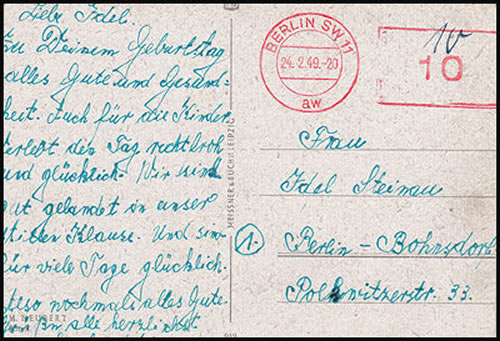 Liebe Idel.
zu Deinem Geburtstag
alles Gute und Gesund-
heit. Auch für die Kinder
verlebt den Tag recht froh
und glücklich. Wir sind
gut gelandet in unser
stillen Klause. Und sind
für viele Tage glücklich.
Also nochmals alles Gute
alle herzlichst
M. NEUBERT
MEISSNER & BUCH, LEIPZIG
BERLIN SW 11
24. 2. 49.-20
aw
10
10
Frau
Idel Steinau
1.
Berlin - Bohnsdorf
33.